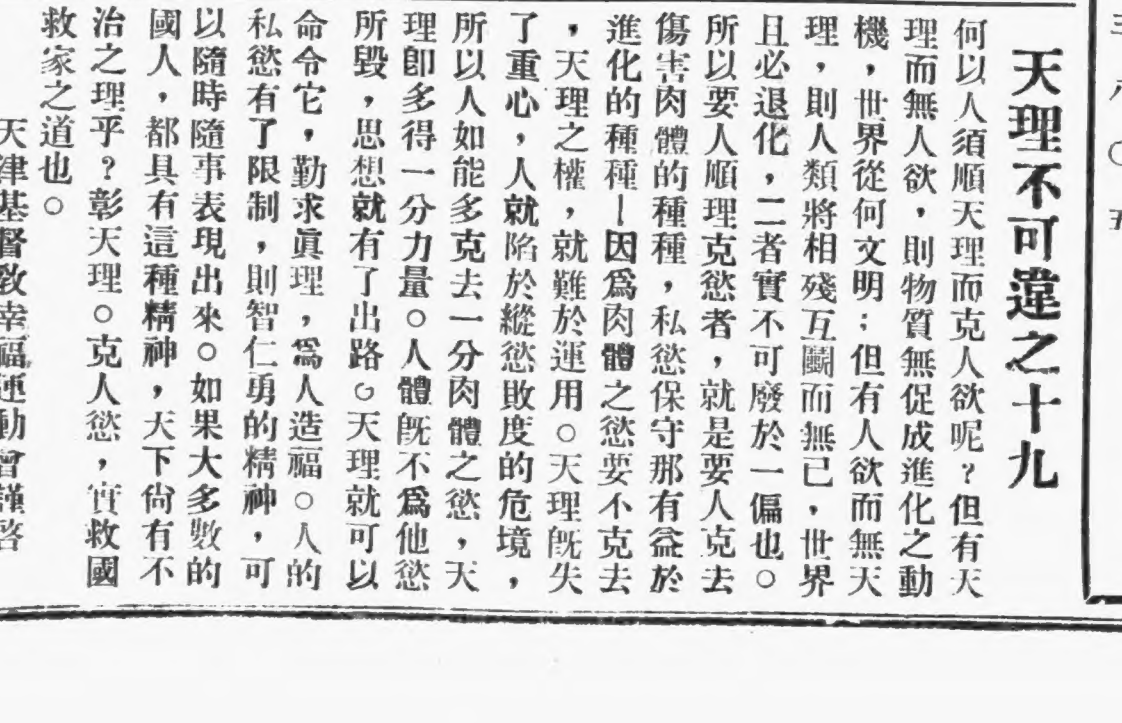 三八〇五
天理不可違之十九
何以人須順天理而克人欲呢？但有天
理而無人欲，則物質無促成進化之動
機，世界從何文明；但有人欲而無天
理，則人類將相殘互鬭而無已，世界
且必退化，二者實不可廢於一偏也。
所以要人順理克慾者，就是要人克去
傷害肉體的種種，私慾保守那有益於
進化的種種—因爲肉體之慾要不克去
，天理之權，就難於運用。天理旣失
了重心，人就陷於縱慾敗度的危境，
所以人如能多克去一分肉體之慾，天
理卽多得一分力量。人體旣不爲他慾
所毀，思想就有了出路。天理就可以
命令它，勤求眞理，爲人造福。人的
私慾有了限制，則智仁勇的精神，可
以隨時隨事表現出來。如果大多數的
國人，都具有這種精神，天下尙有不
治之理乎？彰天理。克人慾，實救國
救家之道也。
天津基督敎幸福運動會謹啓